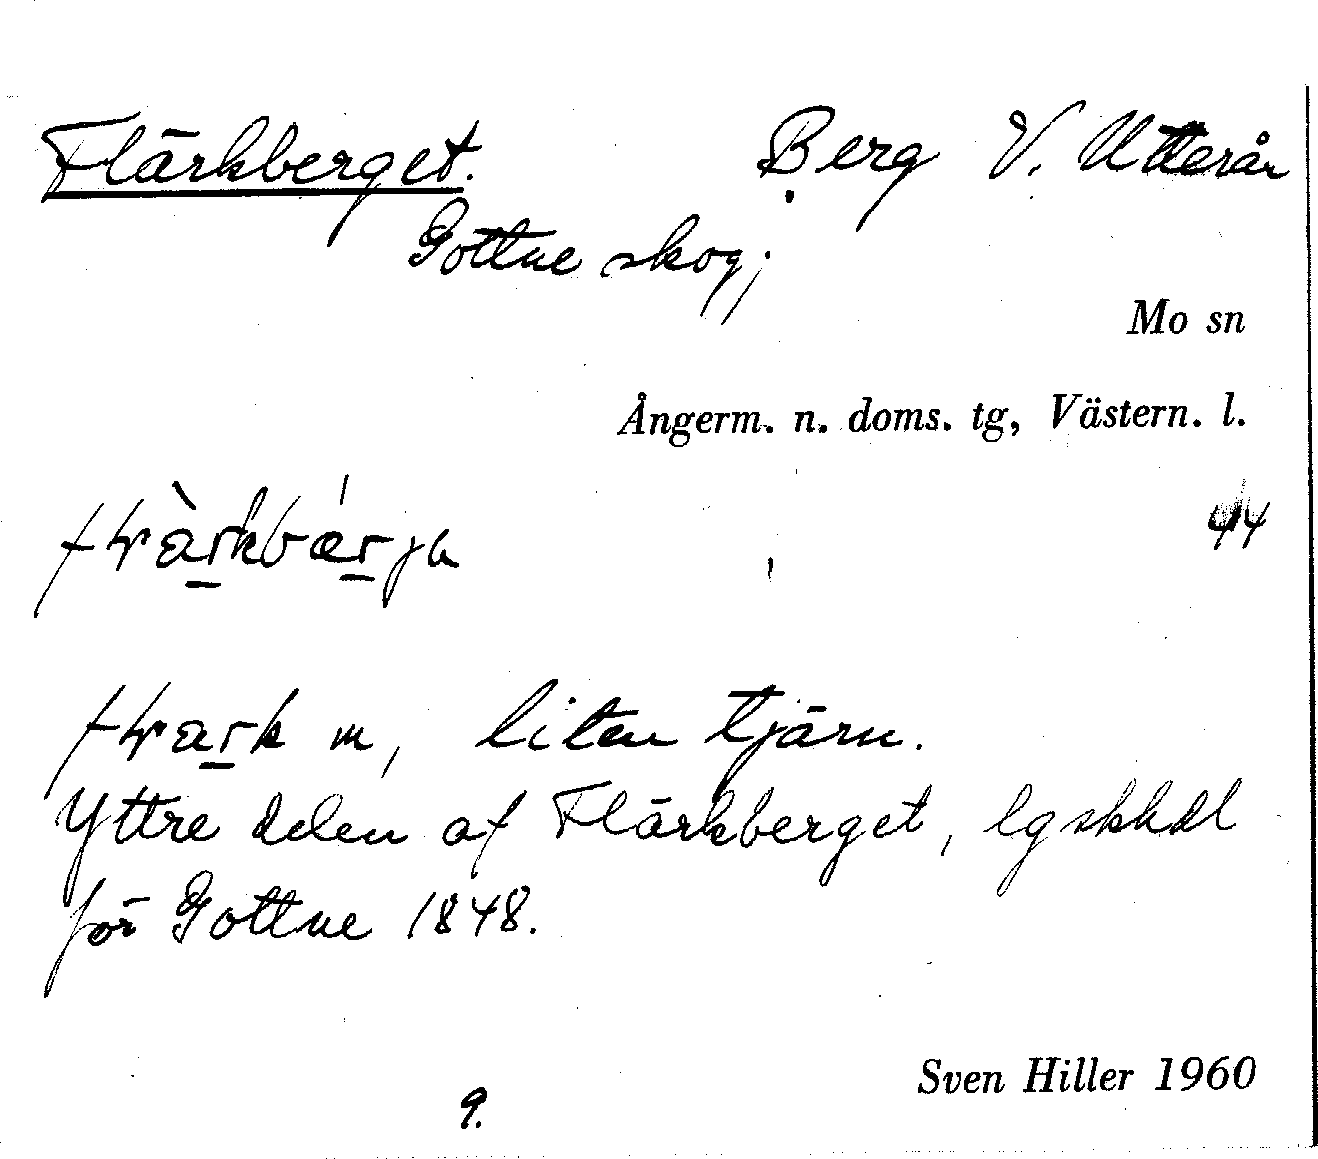 Flärkberget. Berg V. Utterån
Gottne skog;
Mo sn
Ångerm. n. doms. tg, Västern. l.
44
liten tjärn.
Yttre delen af Flärkberget, lgskhdl
för Gottne 1848.
Sven Hiller 1960
9.